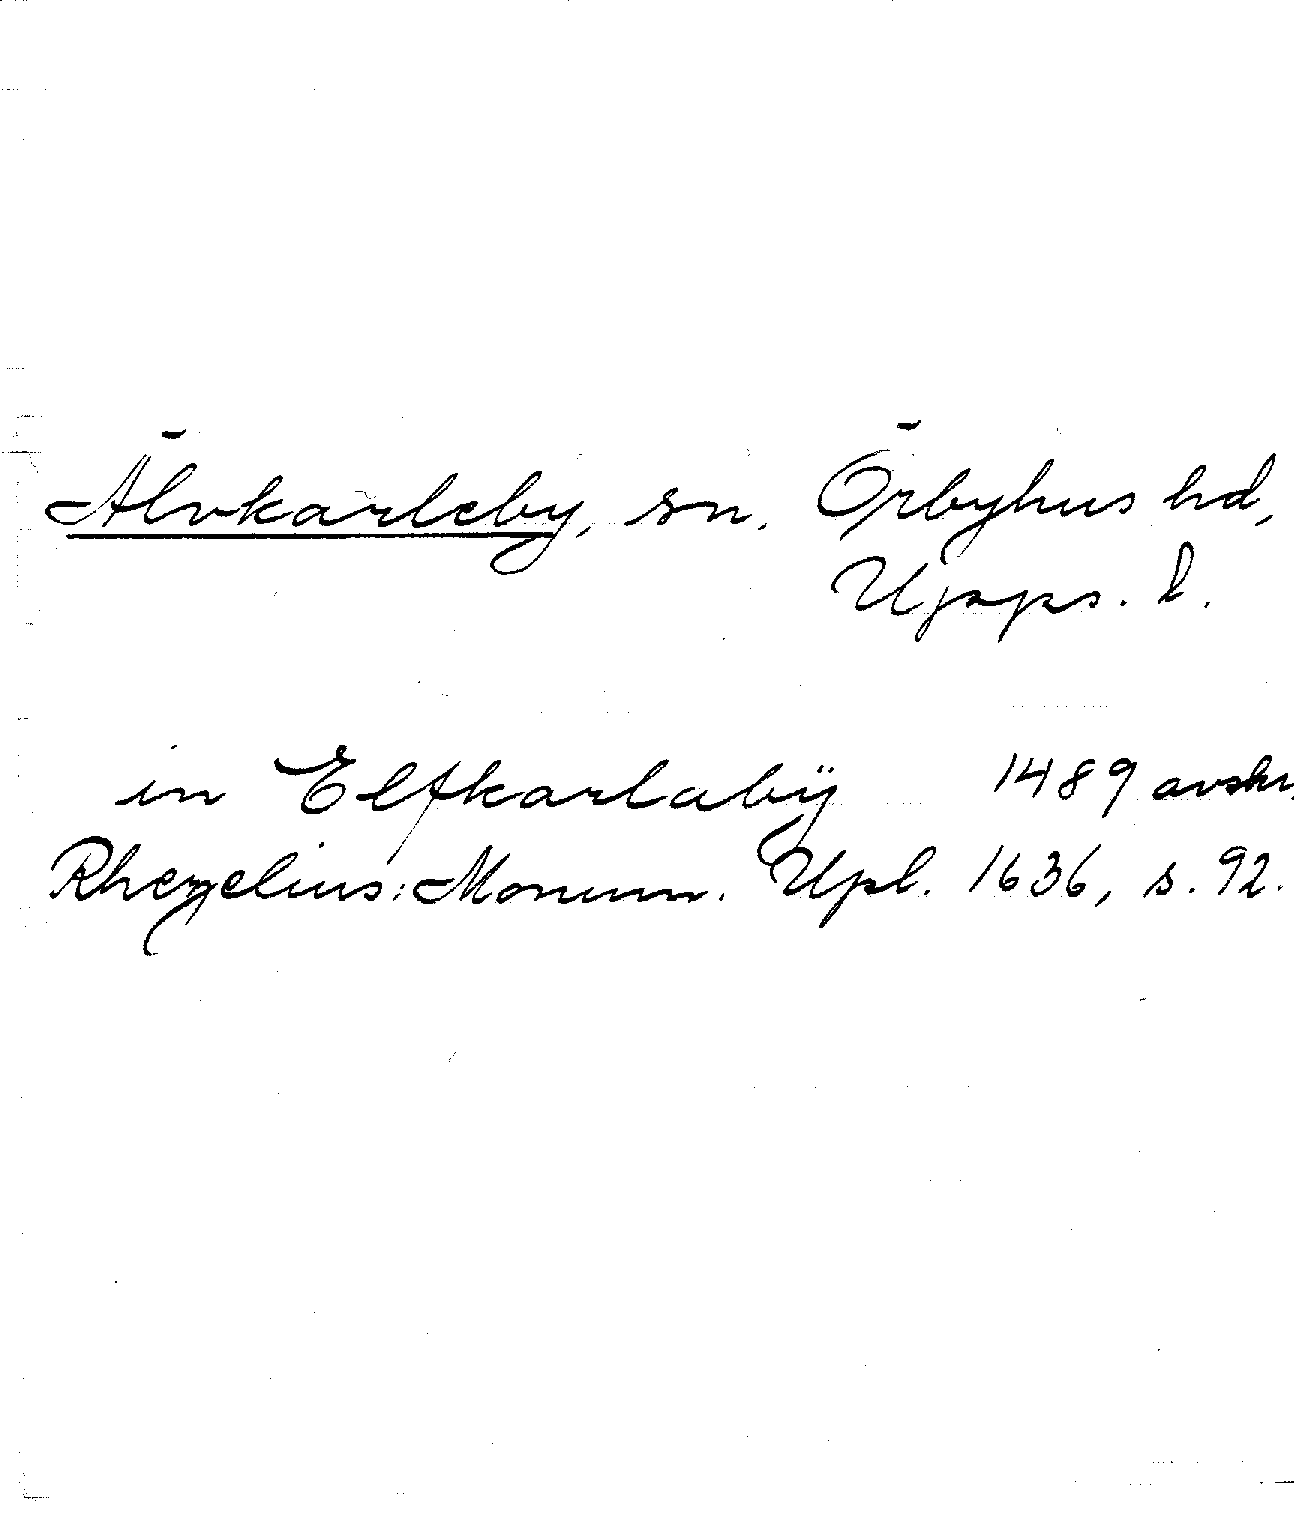 Älvkarleby, sn, Örbyhus hd,
Upps. l.
in Elfkarlabÿ 1489 avskr.
Rhezelius: Monum. Upl. 1636, s. 92.